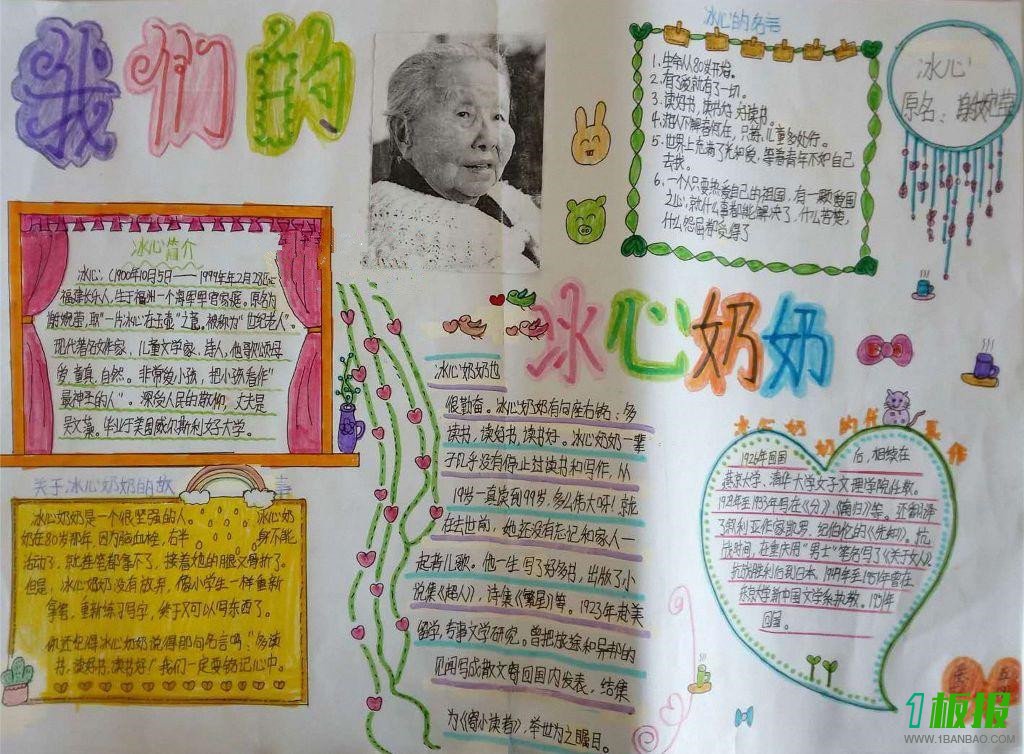 我們的
冰心奶奶
冰心的名言
1.生命从80岁开始。
2.有了爱就有了一切。
3.读好书,读书好,好读书。
5.世界上充满了光和爱,等着青年不把自己
去找。
6.一个人只要热爱自己的祖国,有一颗爱国
之心,就什么事都能解决了,什么苦楚,
什么怨屈都受得了
冰心
原名:谢婉莹
冰心简介
冰心,(1900年10月5日——1999年年2月28日),
福建长乐人,生于福州一个海军军官家庭。原名为
谢婉莹,取“一片冰心在玉壶”之意,被称为“世纪老人”。
现代著名女作家,儿童文学家,诗人,他歌颂母
爱,童真,自然。非常爱小孩,把小孩看作“
最神圣的人”。深受人民的敬仰,丈夫是
吴文藻。毕业于美国威尔斯利女子大学。
关于冰心奶奶的故事
冰心奶奶是一个很坚强的人。冰心奶
奶在80岁那年,因为脑血栓,右半身不能
活动了,就连笔都拿不了,接着她的腿又骨折了。
但是,冰心奶奶没有放弃,像小学生一样重新
拿笔,重新练习写字,终于又可以写东西了。
你还记得冰心奶奶说得那句名言吗“多读
书,读好书,读书好!我们一定要铭记心中。
冰心奶奶也
很勤奋。冰心奶奶有句座右铭:多
读书,读好书,读书好。冰心奶奶一辈
子几乎没有停止过读书和写作,从
19岁一直读到99岁,多么伟大呀!就
在去世前,她还没有忘记和家人一
起看儿歌。他一生写了好多书,出版了小
说集《超人》,诗集《繁星》等。1923年赴美
留学,专事文学研究。曾把旅途和异邦的
见闻写成散文寄回国内发表,结集
为《寄小读者》,举世为之瞩目。
冰心奶奶的代表作
1926年回国后,相续在
燕京大学、清华大学女子文理学院任教。
1929年至1933年写有《分》、《南归》等。还翻译
了叙利亚作家凯罗·纪伯伦的《先知》。抗
战时间,在重庆用“男士”笔名写了《关于女人》
抗战胜利后到日本,1949年至1951年曾在
东京大学新中国文学系执教。1951年
回国。
1板报
WWW.1BANBAO.COM